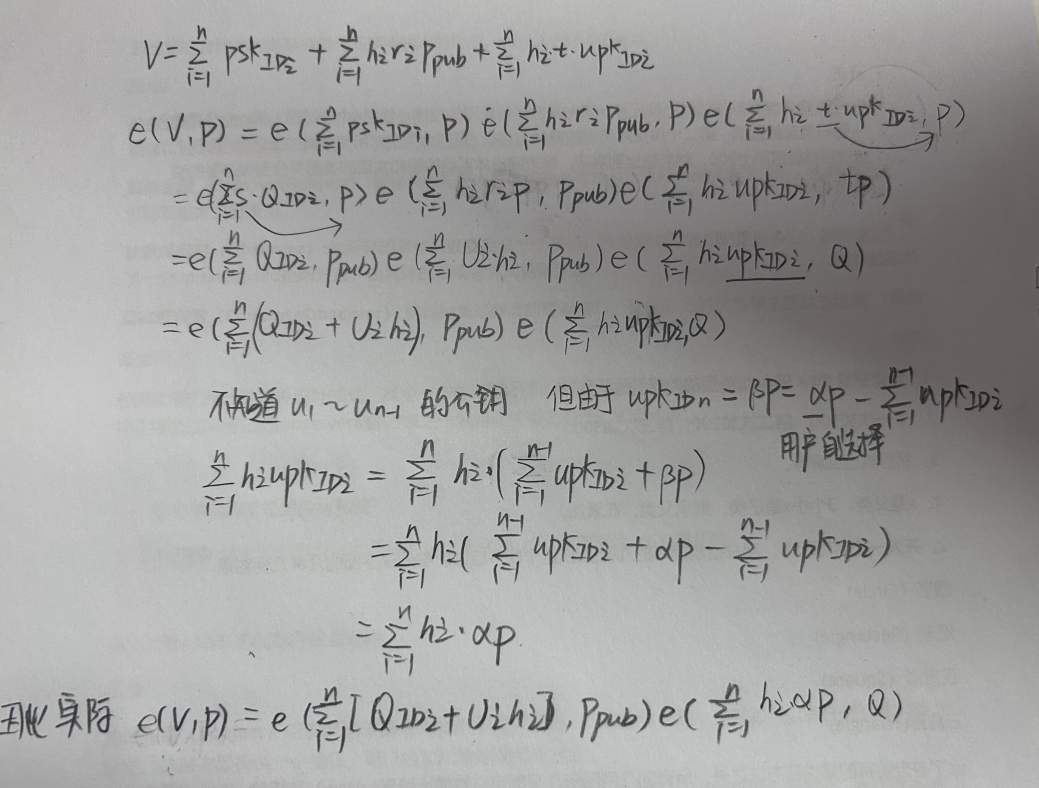 V = \sum_{i=1}^{n} psk_{IDi} + \sum_{i=1}^{n} hi ri Ppub + \sum_{i=1}^{n} hi·t·upk_{IDi}
e(V,P) = e(\sum_{i=1}^{n} psk_{IDi}, P) e(\sum_{i=1}^{n} hi ri Ppub, P) e(\sum_{i=1}^{n} hi t·upk_{IDi}, P)
= e(\sum_{i=1}^{n} s·Q_{IDi}, P) e(\sum_{i=1}^{n} hi ri P, Ppub) e(\sum_{i=1}^{n} hi upk_{IDi}, tP)
= e(\sum_{i=1}^{n} Q_{IDi}, Ppub) e(\sum_{i=1}^{n} Ui·hi, Ppub) e(\sum_{i=1}^{n} hi upk_{IDi}, Q)
= e(\sum_{i=1}^{n} (Q_{IDi} + Ui hi), Ppub) e(\sum_{i=1}^{n} hi upk_{IDi}, Q)
不知道 u_1 ~ u_{n-1} 的公钥 但由于 upk_{IDn} = βP = αP - \sum_{i=1}^{n-1} upk_{IDi}
用户自选择
\sum_{i=1}^{n} hi upk_{IDi} = \sum_{i=1}^{n} hi·(\sum_{i=1}^{n-1} upk_{IDi} + βP)
= \sum_{i=1}^{n} hi(\sum_{i=1}^{n-1} upk_{IDi} + αP - \sum_{i=1}^{n-1} upk_{IDi})
= \sum_{i=1}^{n} hi·αP.
因此实际 e(V,P) = e(\sum_{i=1}^{n} [Q_{IDi} + Ui hi], Ppub) e(\sum_{i=1}^{n} hi αP, Q)